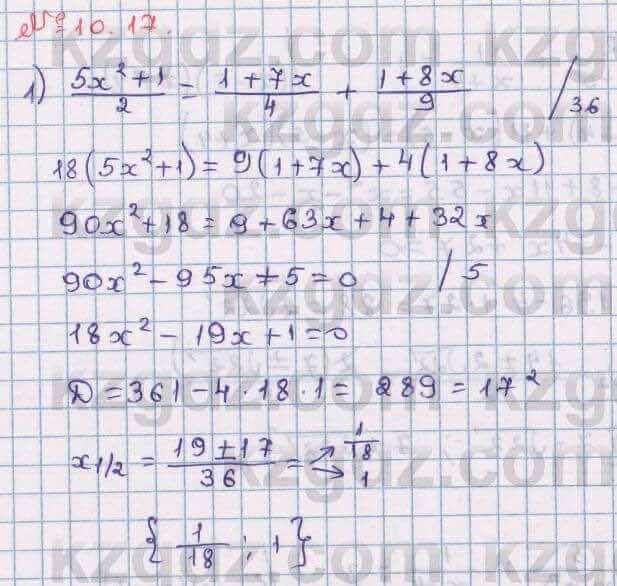 № 10.17.
1) (5x² + 1)/2 = (1 + 7x)/4 + (1 + 8x)/9 / 36
18(5x² + 1) = 9(1 + 7x) + 4(1 + 8x)
90x² + 18 = 9 + 63x + 4 + 32x
90x² - 95x + 5 = 0 / 5
18x² - 19x + 1 = 0
D = 361 - 4 · 18 · 1 = 289 = 17²
x₁/₂ = (19 ± 17)/36 = ↗ 1/18 ↘ 1
{ 1/18 ; 1 }
kzgdz.com